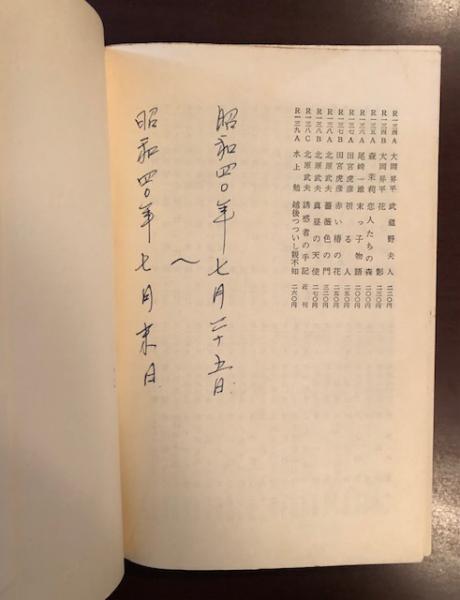 R一三四A 大岡昇平 武蔵野夫人 二二〇円
R一三四B 大岡昇平 花影 二三〇円
R一三五A 森茉莉 恋人たちの森 二〇〇円
R一三六A 尾崎一雄 末っ子物語 二〇〇円
R一三七A 田宮虎彦 祈る人 二五〇円
R一三七B 田宮虎彦 赤い椿の花 二五〇円
R一三八A 北原武夫 薔薇色の門 三二〇円
R一三八B 北原武夫 真昼の天使 二七〇円
R一三八C 北原武夫 誘惑者の手記 近刊
R一三九A 水上勉 越後つついし親不知 二六〇円
昭和四〇年七月二十五日
〜
昭和四〇年七月末日